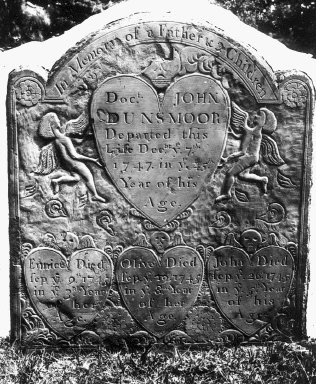 In Memory of a Father & 3 Children
Doct. JOHN
DUNSMOOR
Departed this
Life Decr. ye 7th
1747 in ye 45th
Year of his
Age.
Eunice Died
Sep ye 9th 1745
in ye 3d Year
of her
Age
Olive Died
Sep ye 20th 1745
in ye Year
of her
Age
John Died
Sep ye 26 1745
in ye 5th Year
of his
Age